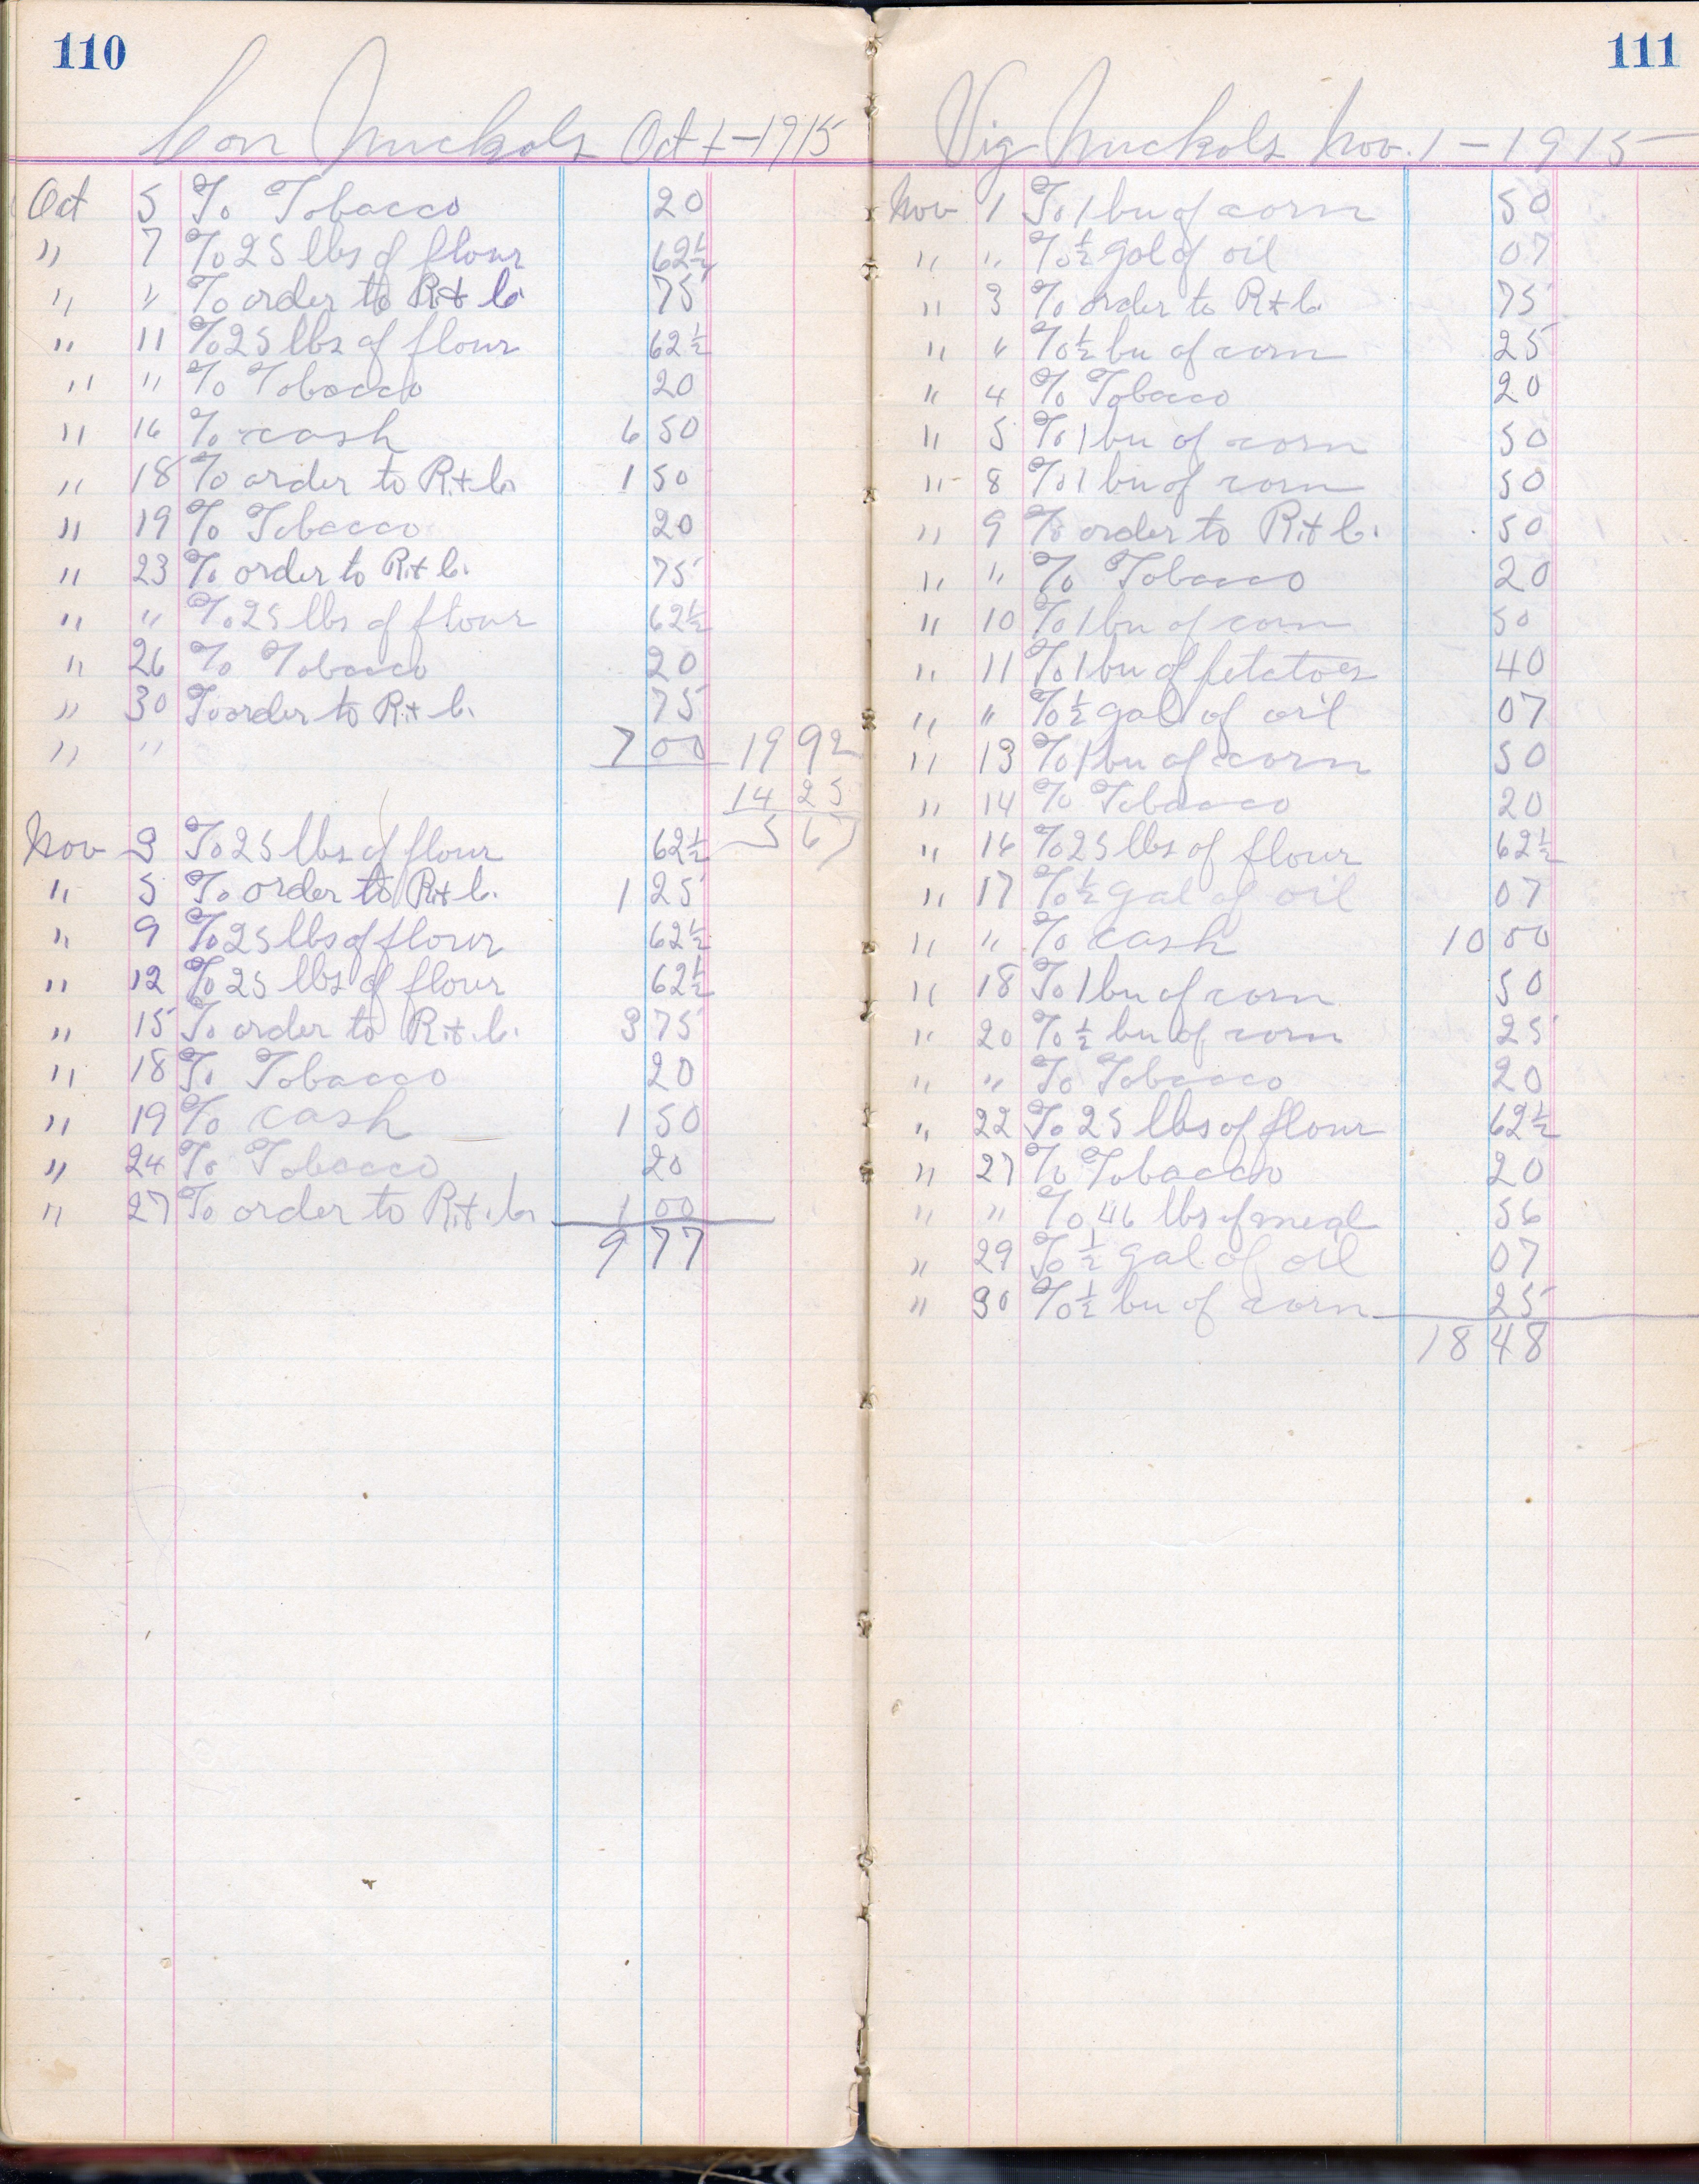 110
Con Nuckols Oct 1-1915
Oct 5 To Tobacco 20
" 7 To 25 lbs of flour 62½
" " To order to R.+ C. 75
" 11 To 25 lbs of flour 62½
" " To Tobacco 20
" 16 To cash 6 50
" 18 To order to R.+ C. 1 50
" 19 To Tobacco 20
" 23 To order to R.+ C. 75
" " To 25 lbs of flour 62½
" 26 To Tobacco 20
" 30 To order to R.+ C. 75
" " 7 00 19 92
14 25
5 67
Nov 3 To 25 lbs of flour 62½
" 5 To order to R+ C. 1 25
" 9 To 25 lbs of flour 62½
" 12 To 25 lbs of flour 62½
" 15 To order to R.+ C. 3 75
" 18 To Tobacco 20
" 19 To cash 1 50
" 24 To Tobacco 20
" 27 To order to R.+ C. 1 00
9 77
111
Vig Nuckols Nov. 1-1915
Nov 1 To 1 bu of corn 50
" " To ½ gal of oil 07
" 3 To order to R+ C. 75
" " To ½ bu of corn 25
" 4 To Tobaco 20
" 5 To 1 bu of corn 50
" 8 To 1 bu of corn 50
" 9 To order to R.+ C. 50
" " To Tobacco 20
" 10 To 1 bu of corn 50
" 11 To 1 bu of potatoes 40
" " To ½ gal of oil 07
" 13 To 1 bu of corn 50
" 14 To Tobacco 20
" 16 To 25 lbs of flour 62½
" 17 To ½ gal of oil 07
" " To cash 10 00
" 18 To 1 bu of corn 50
" 20 To ½ bu of corn 25
" " To Tobacco 20
" 22 To 25 lbs of flour 62½
" 27 To Tobacco 20
" " To 46 lbs of meal 56
" 29 To ½ gal of oil 07
" 30 To ½ bu of corn 25
18 48